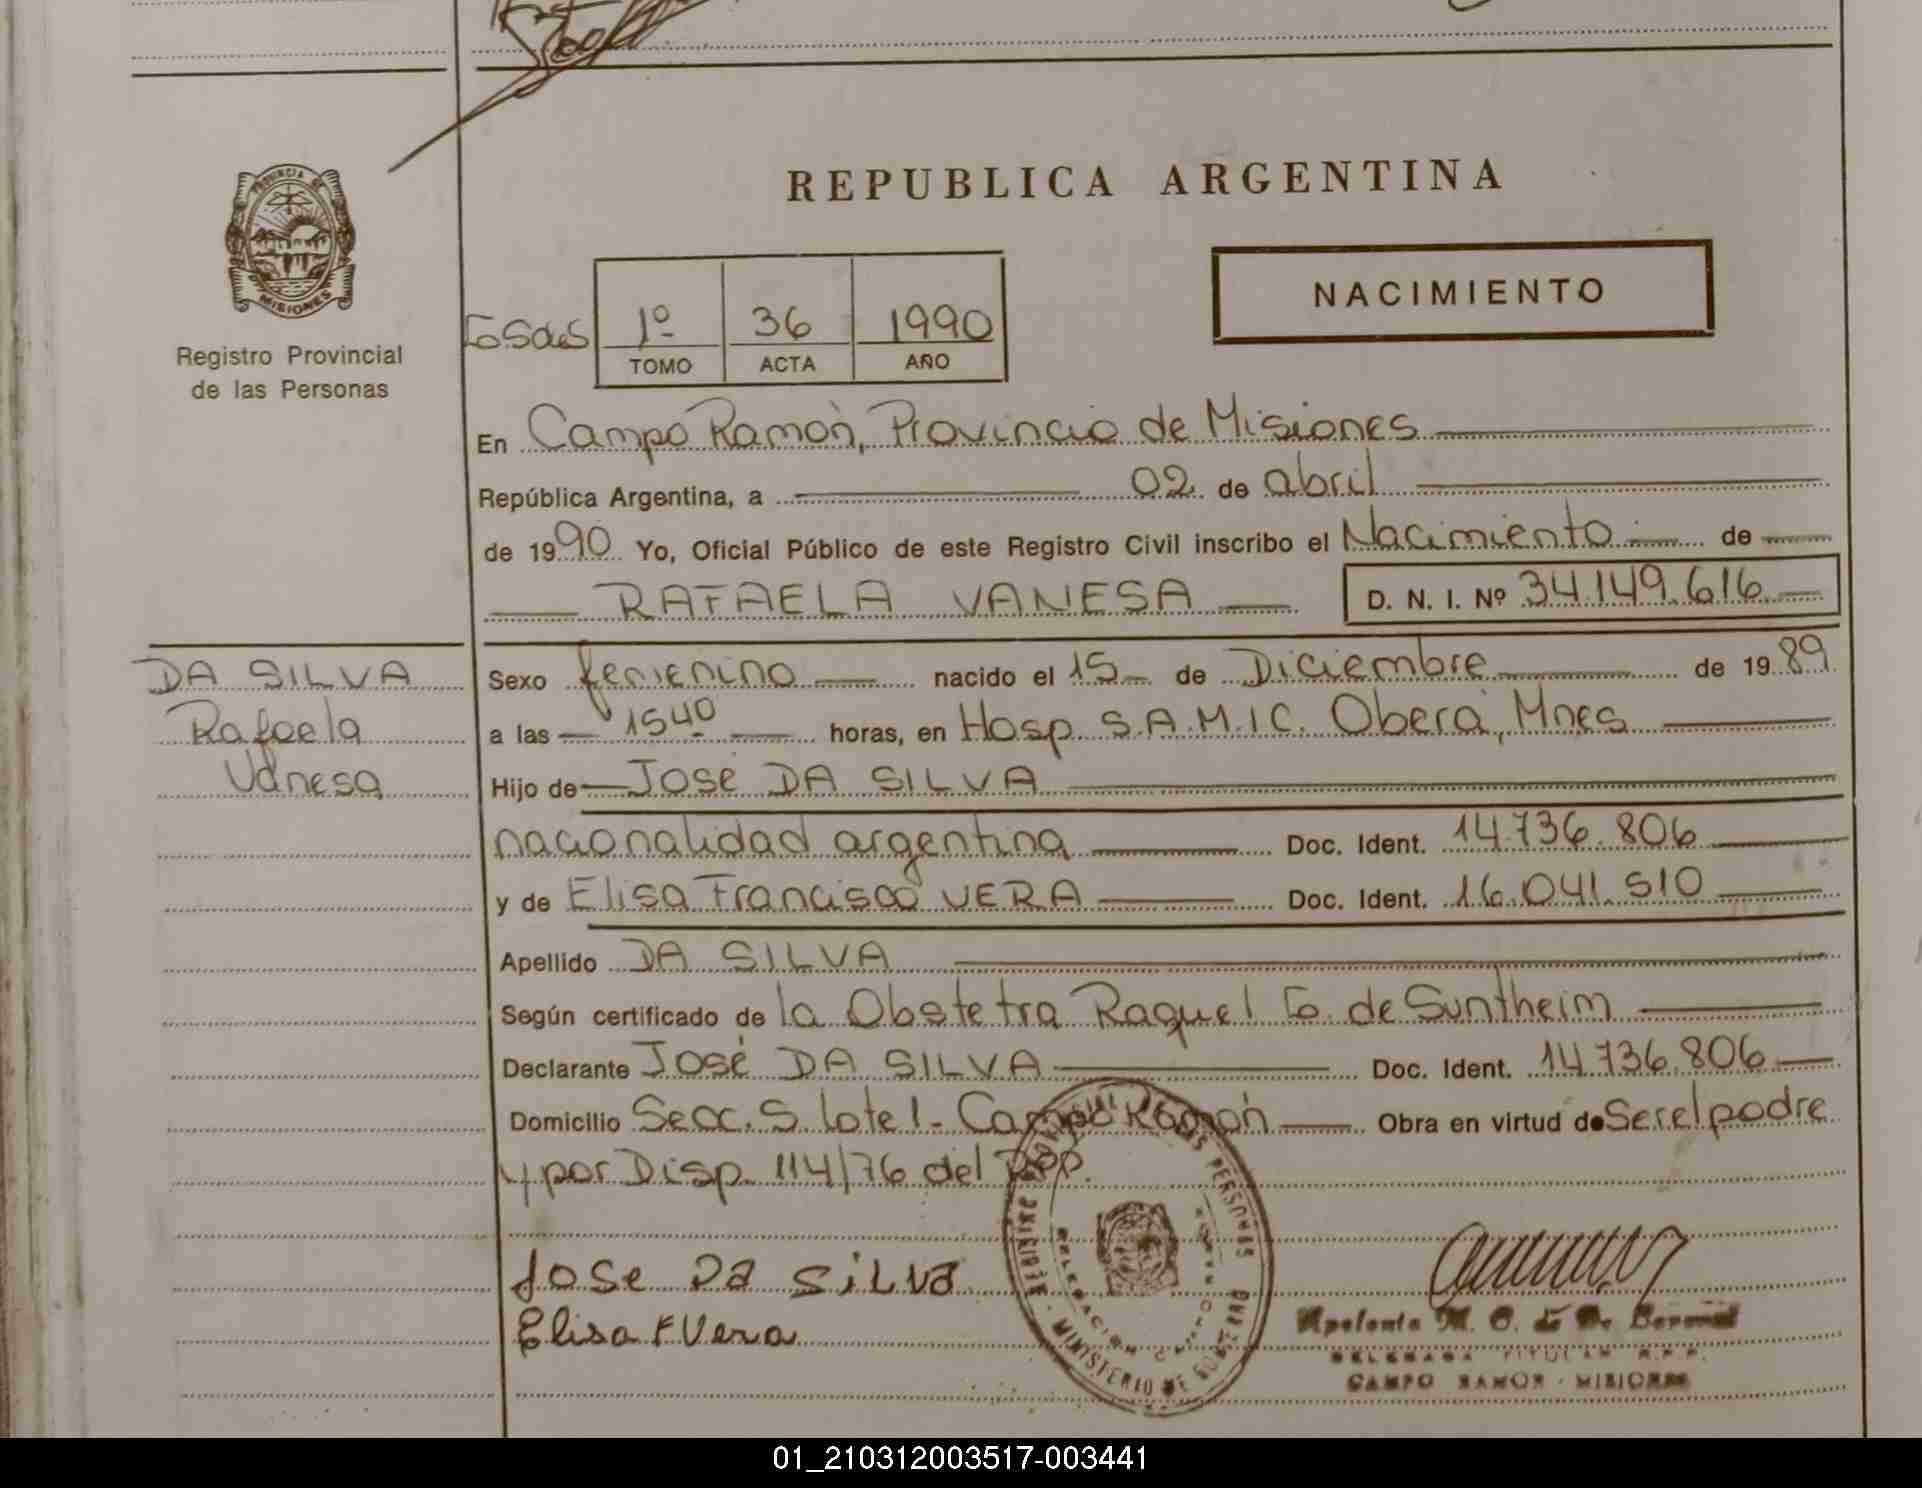 REPUBLICA ARGENTINA
PROVINCIA DE
MISIONES
Registro Provincial
de las Personas
NACIMIENTO
1º 36 1990
TOMO ACTA AÑO
En Campo Ramón, Provincia de Misiones
República Argentina, a 02 de abril
de 1990 Yo, Oficial Público de este Registro Civil inscribo el Nacimiento de
RAFAELA VANESA D. N. I. Nº 34.149.616
DA SILVA
Rafaela
Vanesa
Sexo femenino nacido el 15 de Diciembre de 1989
a las 1540 horas, en Hosp. S.A.M.I.C. Oberá, Mnes
Hijo de José DA SILVA
nacionalidad argentina Doc. Ident. 14.736.806
y de Elisa Francisca VERA Doc. Ident. 16.041.510
Apellido DA SILVA
Según certificado de la Obstetra Raquel G. de Suntheim
Declarante José DA SILVA Doc. Ident. 14.736.806
Domicilio Secc. S. lote 1 - Campo Ramón Obra en virtud de Ser el padre
y por Disp. 114/76 del RPP.
Jose Da SiLva
Elisa F Vera
MINISTERIO DE GOBIERNO
DELEGADA TITULAR R.P.P.
CAMPO RAMON - MISIONES
01_210312003517-003441